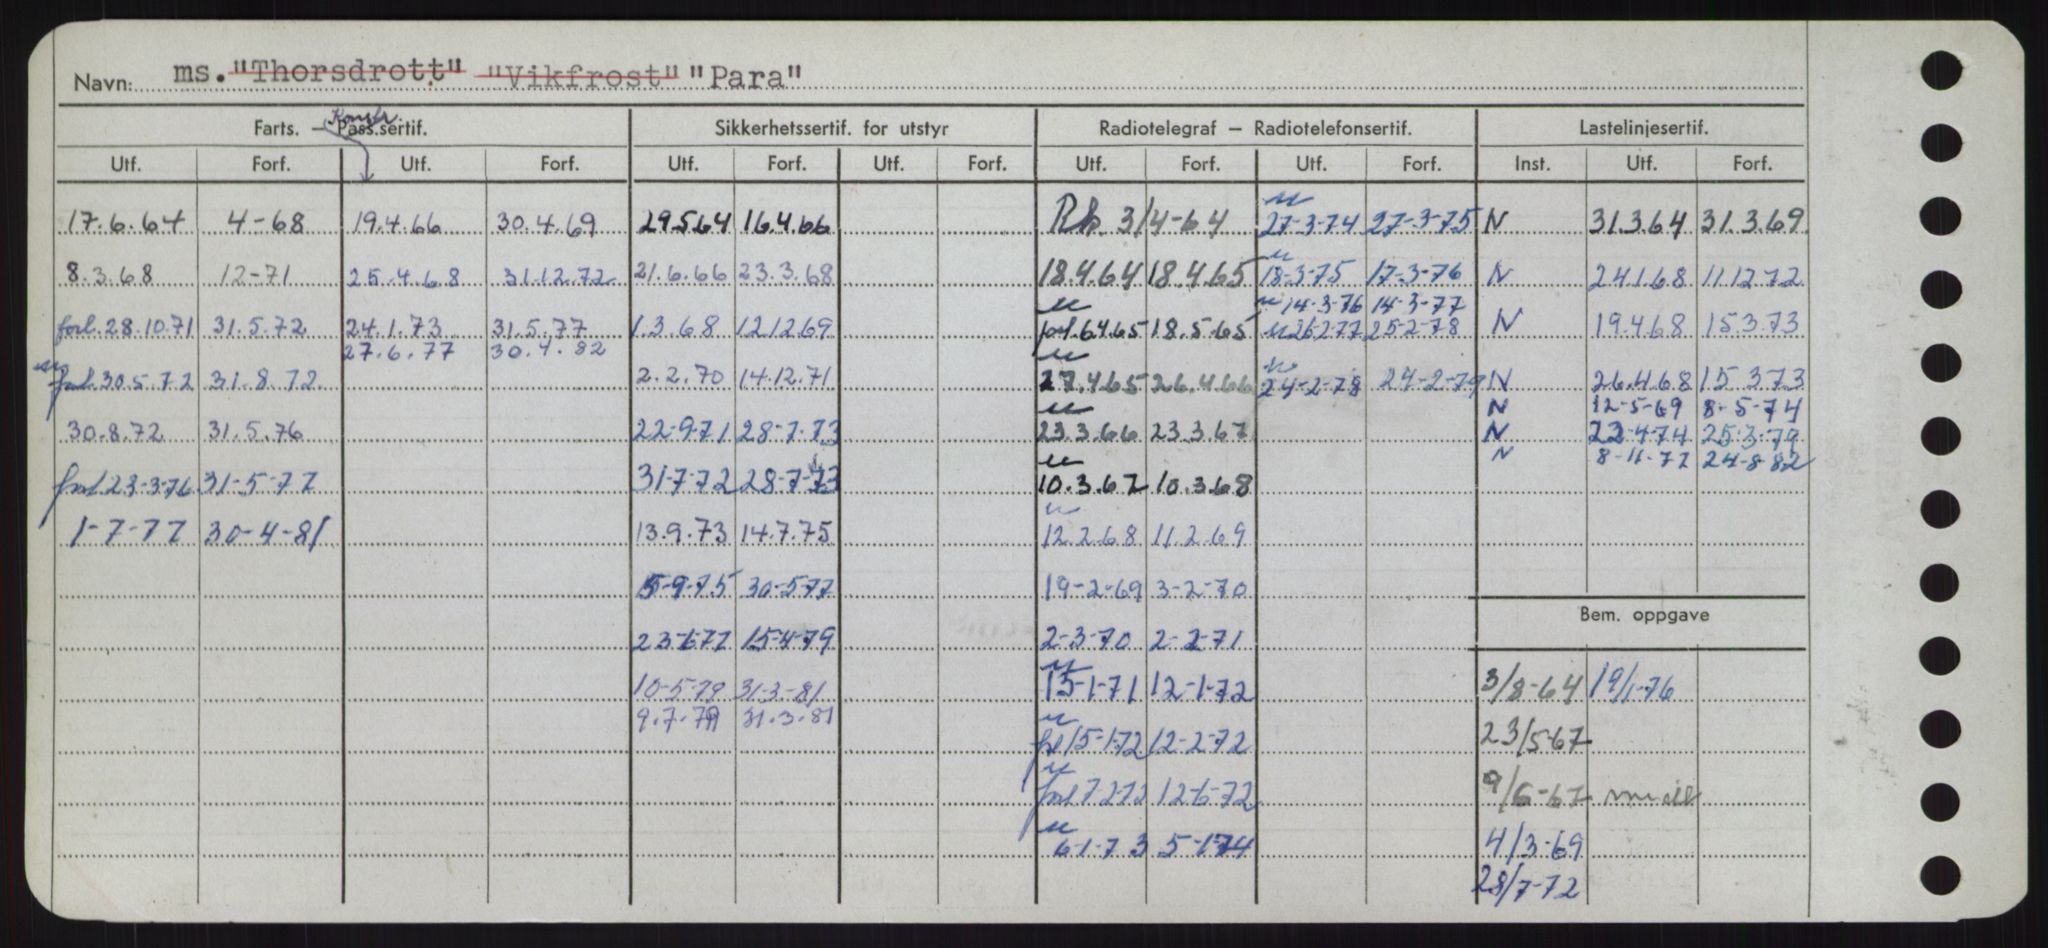 Navn: ms. "Thorsdrott" "Vikfrost" "Para"
Farts. – Pass.sertif. Konstr. Sikkerhetssertif. for utstyr Radiotelegraf – Radiotelefonsertif. Lastelinjesertif.
Utf. Forf. Utf. Forf. Utf. Forf. Utf. Forf. Utf. Forf. Utf. Forf. Inst. Utf. Forf.
17.6.64 4-68 19.4.66 30.4.69 29.5.64 16.4.66 Rh. 3/4-64 27-3-74 27-3-75 N 31.3.64 31.3.69
8.3.68 12-71 25.4.68 31.12.72 21.6.66 23.3.68 18.4.64 18.4.65 18-3-75 17-3-76 N 24.1.68 11.12.72
14-3-76 14-3-77
forl. 28.10.71 31.5.72 24.1.73 31.5.77 1.3.68 12.12.69 forl. 6.4.65 18.5.65 26-2-77 25-2-78 N 19.4.68 15.3.73
27.6.77 30.4.82
forl. 30.5.72 31.8.72 2.2.70 14.12.71 27.4.65 26.4.66 24-2-78 24-2-79 N 26.4.68 15.3.73
N 12-5-69 8-5-74
30.8.72 31.5.76 22-9-71 28-7-73 23.3.66 23.3.67 N 22-4-74 25-3-79
N 8-11-77 24-8-82
forl 23-3-76 31-5-77 31-7-72 28-7-73 10.3.67 10.3.68
1-7-77 30-4-81 13.9.73 14.7.75 12.2.68 11.2.69
5-9-75 30-5-77 19-2-69 3-2-70
Bem. oppgave
23-6-77 15-4-79 2-3-70 2-2-71
10-5-79 31-3-81 15-1-71 12-1-72 3/8-64 19/1-76
9.7.79 31.3.81
forl 15-1-72 12-2-72 23/5-67
forl 7-2-72 12-6-72 9/6-67
6-1-73 5-1-74 4/3-69
28/7-72